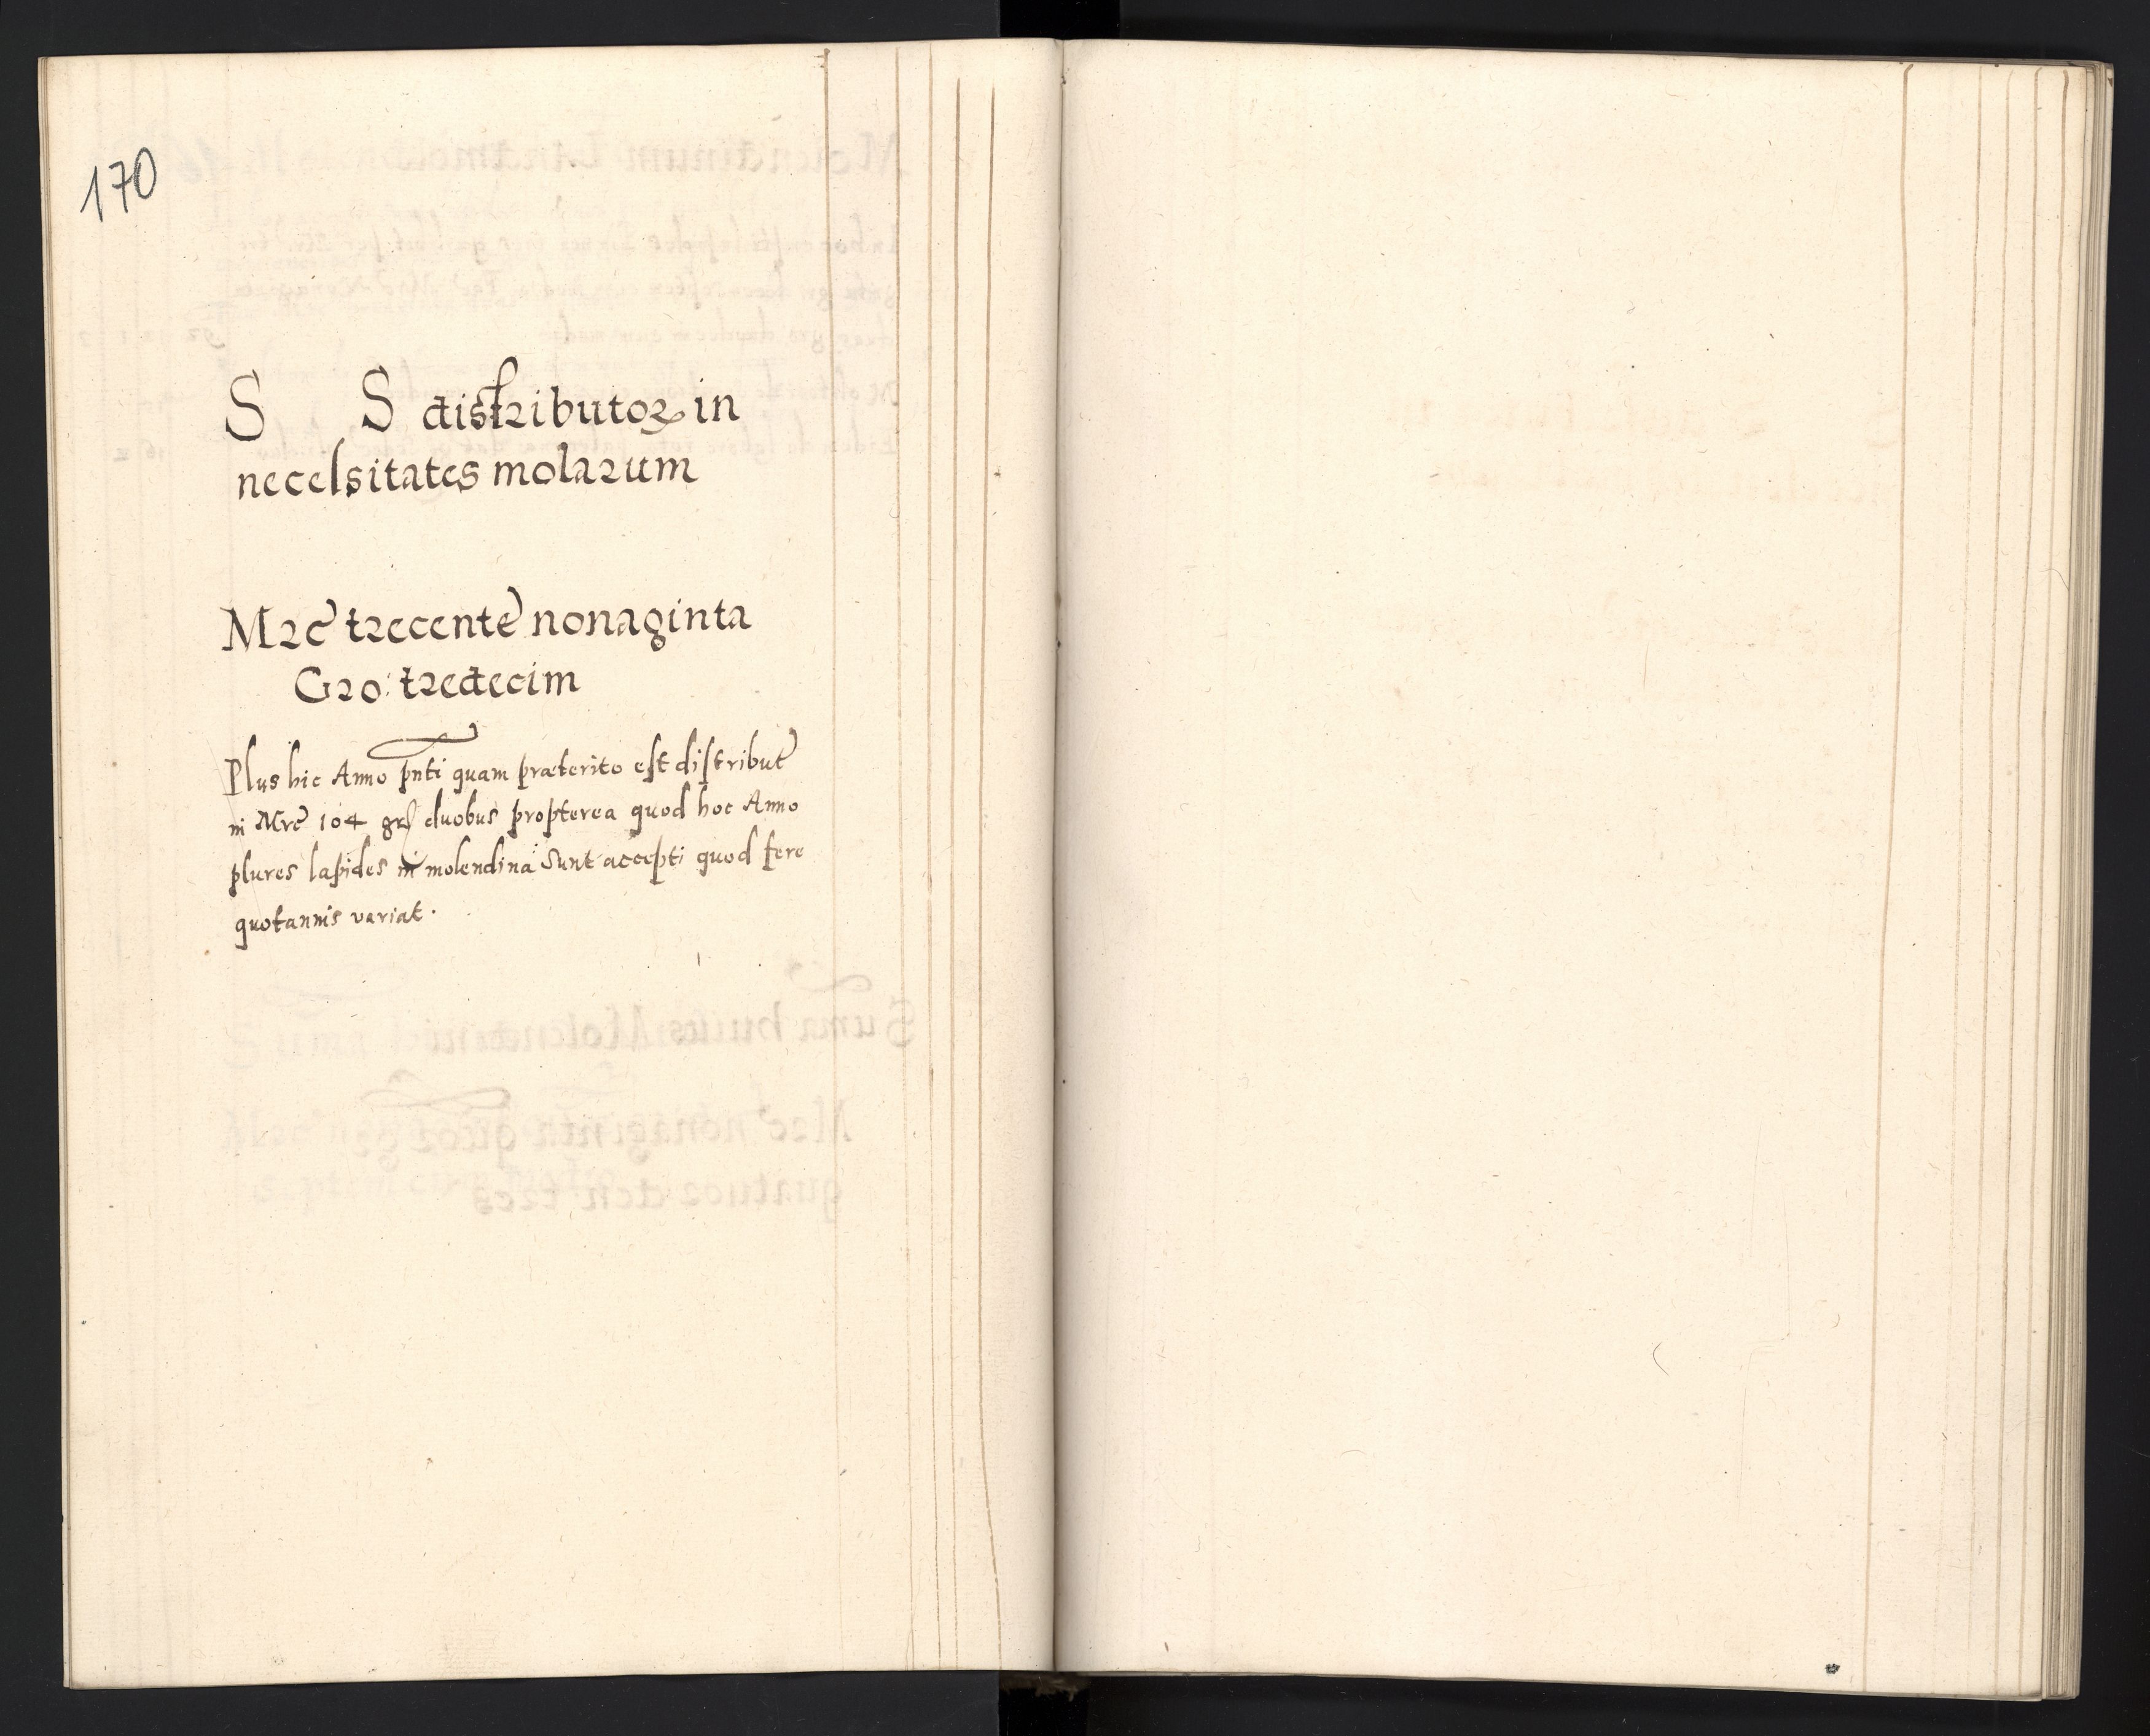 170
S S distributoꝝ in
necessitates molarum
Mrc̃ trecente nonaginta
Gro: tredecim
Plus hic Anno pn̄ti quam præterito est distribut̃
in Mrc̃ 104 grſ duobus propterea quod hoc Anno
plures lapides in molendina sunt accepti quod fere
quotannis variat.